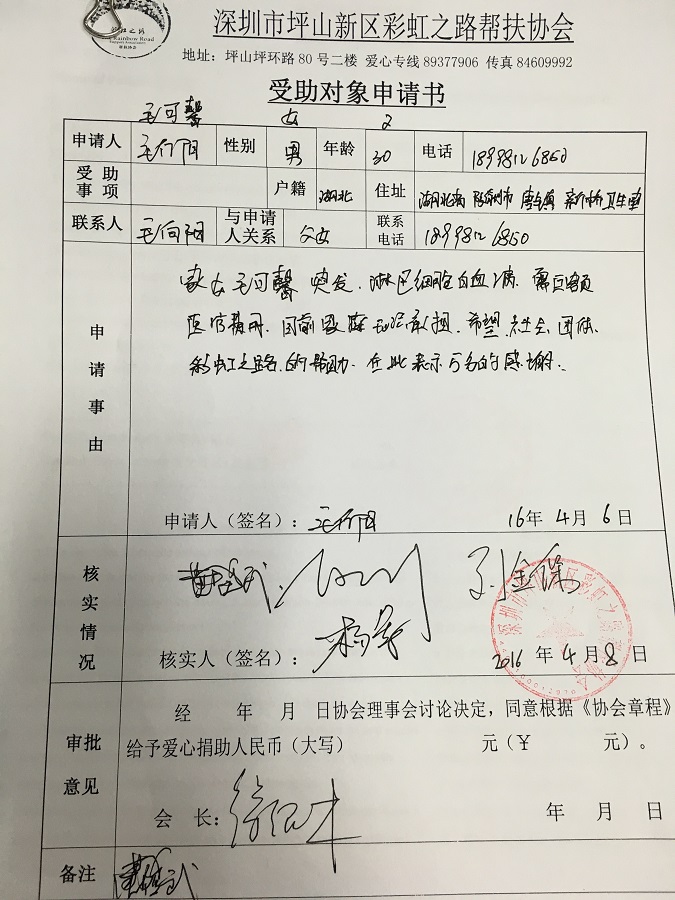 深圳市坪山新区彩虹之路帮扶协会
地址：坪山坪环路80号二楼 爱心专线89377906 传真84609992
受助对象申请书
毛可馨 女 2
申请人 毛向阳 性别 男 年龄 30 电话 18998126850
受助事项 户籍 湖北 住址 湖北省
联系人 毛向阳 与申请人关系 父女 联系电话 18998126850
申请事由
家女毛可馨突发，淋巴细胞白血病，需巨额
医疗费用，目前 无法承担，希望，社会，团体，
彩虹之路，的帮助，在此表示万名的感谢。
申请人（签名）：毛向阳 16年4月6日
核实情况
核实人（签名）： 2016年4月8日
审批意见
经 年 月 日协会理事会讨论决定，同意根据《协会章程》
给予爱心捐助人民币（大写） 元（￥ 元）。
会 长： 年 月 日
备注